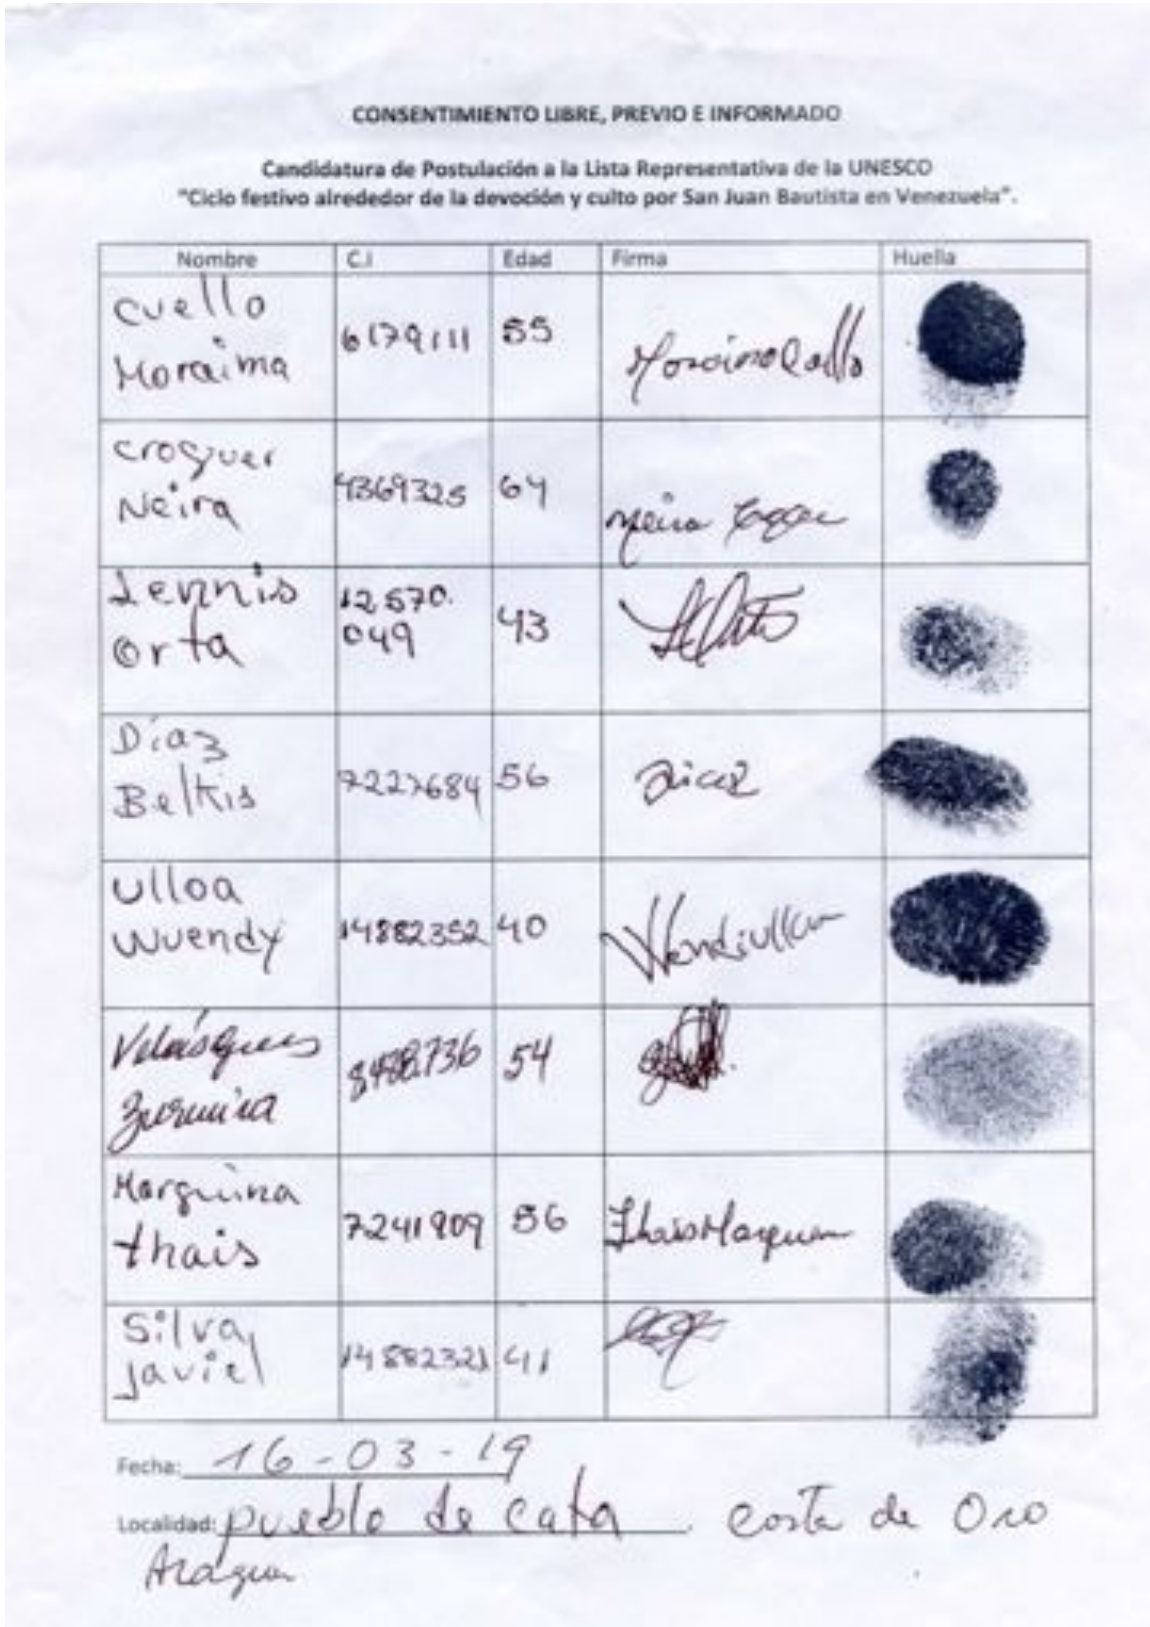 CONSENTIMIENTO LIBRE, PREVIO E INFORMADO
Candidatura de Postulación a la Lista Representativa de la UNESCO
"Ciclo festivo alrededor de la devoción y culto por San Juan Bautista en Venezuela".
Nombre C.I Edad Firma Huella
Cuello
Moraima 6179111 55
Croquer
Neira 4369325 64
Lennis 12570.
Orta 049 43
Díaz
Belkis 7227684 56 Diaz
Ulloa
Wuendy 14882352 40
Velásquez
Zurmira 8488736 54
Marquina
thais 7241909 56
Silva
Javiel 14882323 41
Fecha: 16-03-19
Localidad: pueblo de cata. costa de Oro
Aragua